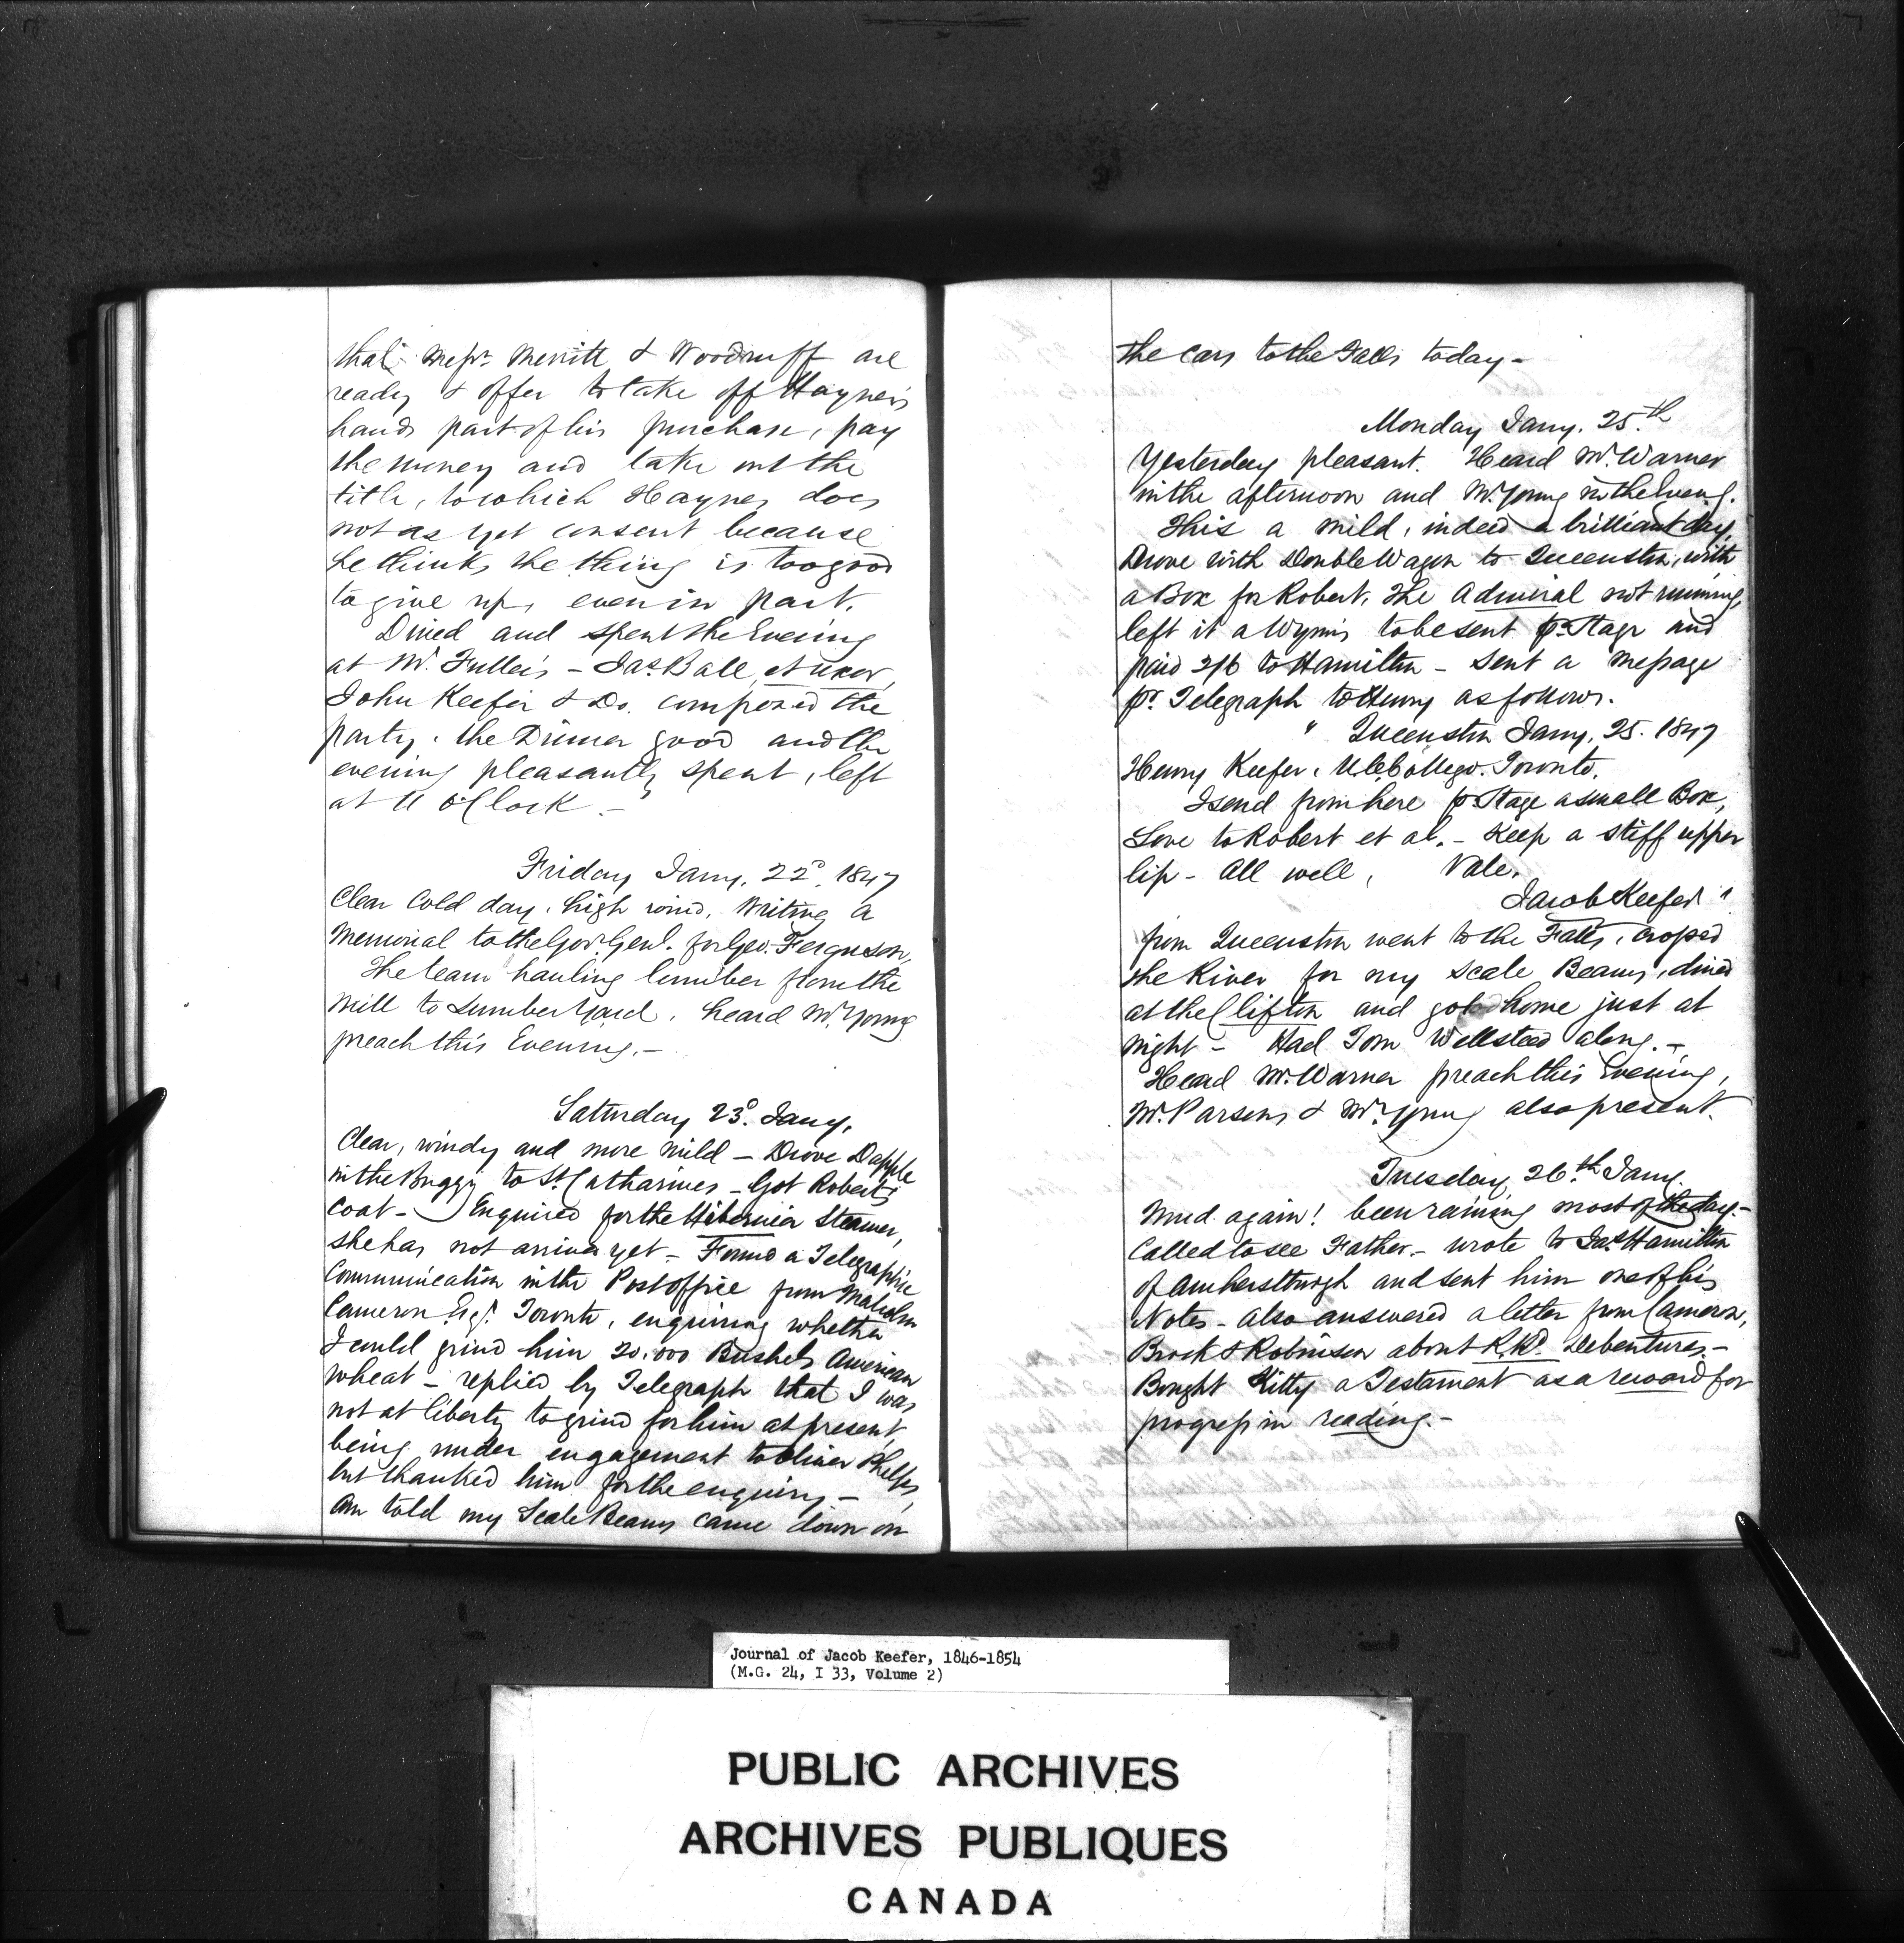 that Messrs. Merritt & Woodruff are
ready & offer to take off Haynes's
hands part of his purchase, pay
the money and take out the
title, to which Haynes does
not as yet consent because
he thinks the thing is too good
to give up, even in part.
Dined and spent the Evening
at Mr. Fuller's – Jas. Ball, et uxor,
John Keefer & Do. composed the
party. the Dinner good and the
evening pleasantly spent, left
at 11 o'Clock –
Friday Jany. 22d. 1847
Clear Cold day, high wind. Writing a
Memorial to the Govr. Genl. for Geo. Ferguson,
The team hauling lumber from the
Mill to Lumber Yard. heard Mr. Young
preach this Evening. –
Saturday 23d. Jany.
Clear, windy and more mild – Drove Dapple
in the Buggy to St. Catharines – Got Robert's
Coat – Enquired for the Hibernia Steamer,
she has not arrived yet – Found a Telegraphic
Communication in the Post office from Malcolm
Cameron Esqr. Toronto, enquiring whether
I could grind him 20,000 Bushels American
wheat – replied by Telegraph that I was
not at liberty to grind for him at present,
being under engagement to Oliver Phelps,
but thanked him for the enquiry –
Am told my Scale Beams came down on
the cars to the Falls today –
Monday Jany. 25.th
Yesterday pleasant. Heard Mr. Warner
in the afternoon and Mr. Young in the Eveng.
This a mild, indeed a brilliant day,
Drove with Double Wagon to Queenston, with
a Box for Robert. The Admiral not running,
left it a Wynn's to be sent pr. Stage and
paid 2/6 to Hamilton – Sent a Message
pr. Telegraph to Henry as follows.
" Queenston Jany. 25. 1847
Henry Keefer, U.C. College. Toronto.
I send from here pr. Stage a small Box,
Love to Robert et al. – Keep a stiff upper
lip – All well, Vale.
Jacob Keefer "
from Queenston went to the Falls, crossed
the River for my Scale Beams, dined
at the Clifton and got home just at
night – Had Tom Wellsteed along. –
Heard Mr. Warner preach this Evening,
Mr. Parsons & Mr. Young also present.
Tuesday 26.th Jany.
Mud again! been raining most of the day. –
Called to see Father. – wrote to Jas. Hamilton
of Amherstburgh and sent him one of his
Notes – also answered a letter from Cameron,
Brock & Robinson about R.Rd. Debentures. –
Bought Kitty a Testament as a reward for
progress in reading. –
Journal of Jacob Keefer, 1846-1854
(M.G. 24, I 33, Volume 2)
PUBLIC ARCHIVES
ARCHIVES PUBLIQUES
CANADA